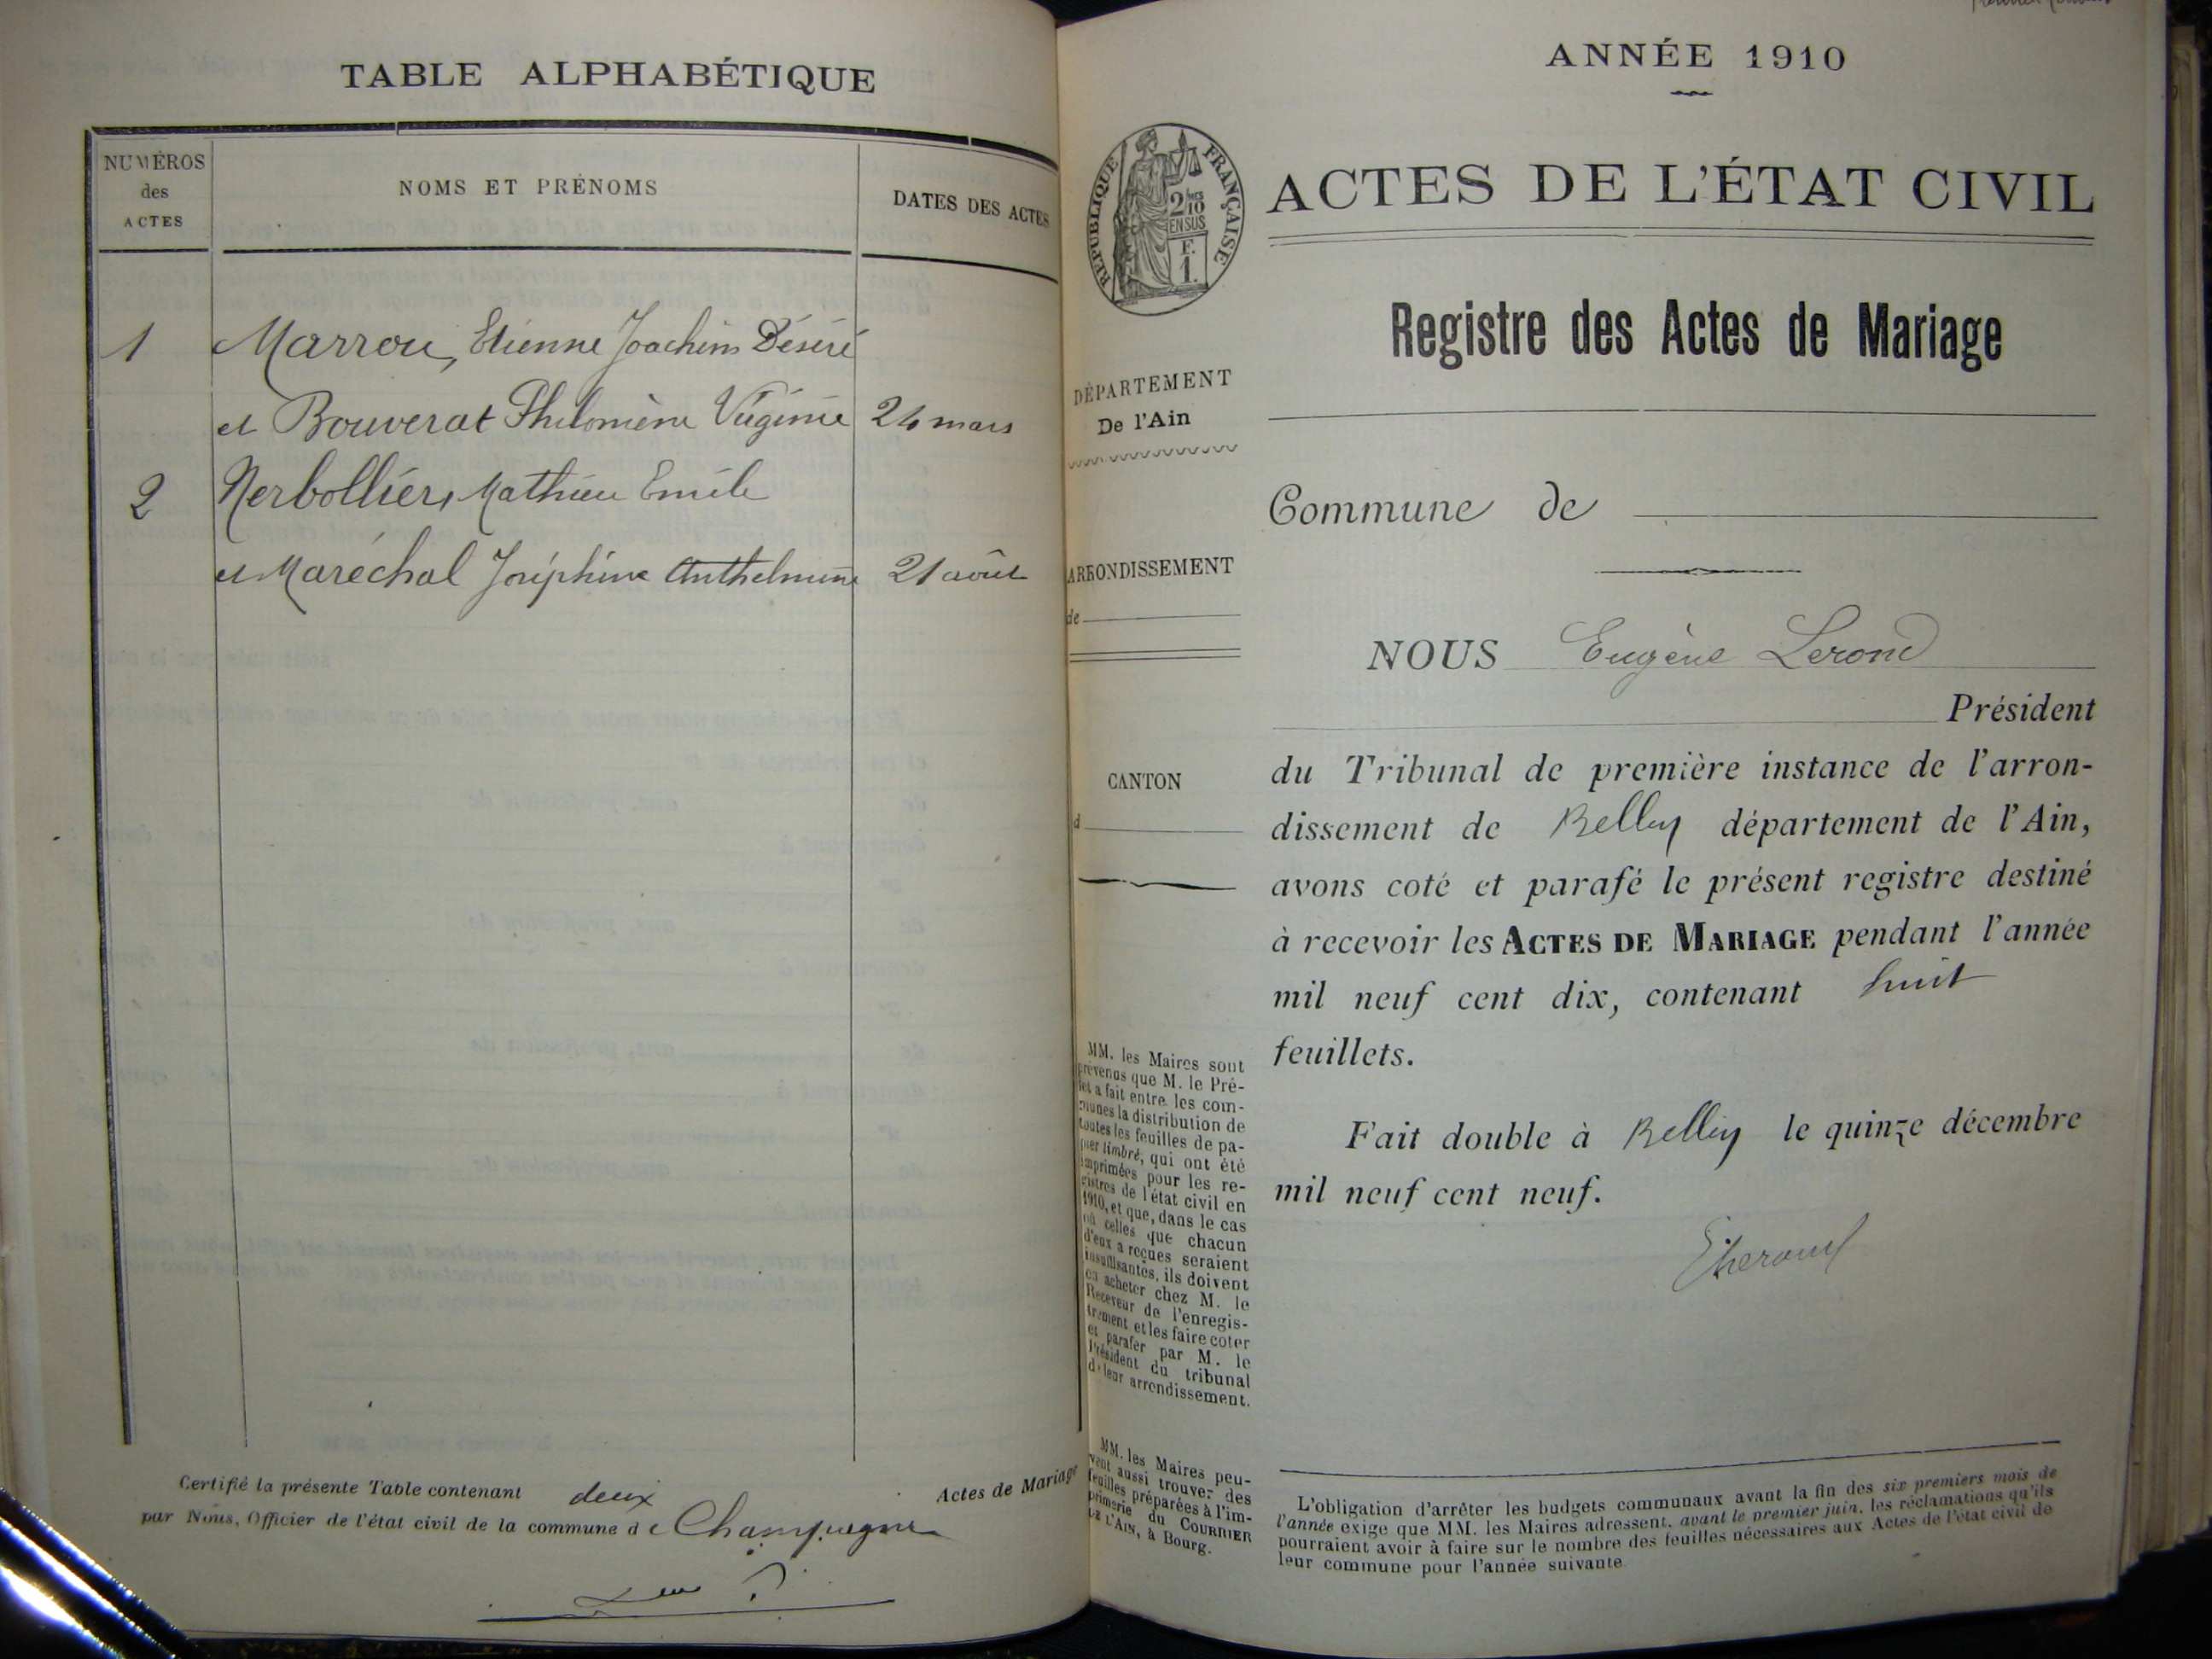 TABLE ALPHABÉTIQUE
NUMÉROS
des
ACTES
NOMS ET PRÉNOMS
DATES DES ACTES
1 Marrou, Etienne Joachim Désiré
et Bouverat Philomène Virginie 24 mars
2 Nerbollier, Mathieu Emile
et Maréchal Joséphine Anthelmine 21 août
Certifié la présente Table contenant deux Actes de Mariage
par Nous, Officier de l'état civil de la commune de Champagne
ANNÉE 1910
RÉPUBLIQUE FRANÇAISE
2/10
EN SUS
F.
1.
ACTES DE L'ÉTAT CIVIL
Registre des Actes de Mariage
DÉPARTEMENT
De l'Ain
Commune de
ARRONDISSEMENT
de
NOUS Eugène Lerond
Président
CANTON
d
du Tribunal de première instance de l'arron-
dissement de Belley département de l'Ain,
avons coté et parafé le présent registre destiné
à recevoir les ACTES DE MARIAGE pendant l'année
mil neuf cent dix, contenant huit
feuillets.
Fait double à Belley le quinze décembre
mil neuf cent neuf.
MM. les Maires sont
prévenus que M. le Pré-
fet a fait entre les com-
munes la distribution de
toutes les feuilles de pa-
pier timbré, qui ont été
imprimées pour les re-
gistres de l'état civil en
1910, et que, dans le cas
où celles que chacun
d'eux a reçues seraient
insuffisantes, ils doivent
en acheter chez M. le
Receveur de l'enregis-
trement et les faire coter
et parafer par M. le
Président du tribunal
de leur arrondissement.
MM. les Maires peu-
vent aussi trouver des
feuilles préparées à l'im-
primerie du COURRIER
DE L'AIN, à Bourg.
L'obligation d'arrêter les budgets communaux avant la fin des six premiers mois de
l'année exige que MM. les Maires adressent, avant le premier juin, les réclamations qu'ils
pourraient avoir à faire sur le nombre des feuilles nécessaires aux Actes de l'état civil de
leur commune pour l'année suivante.